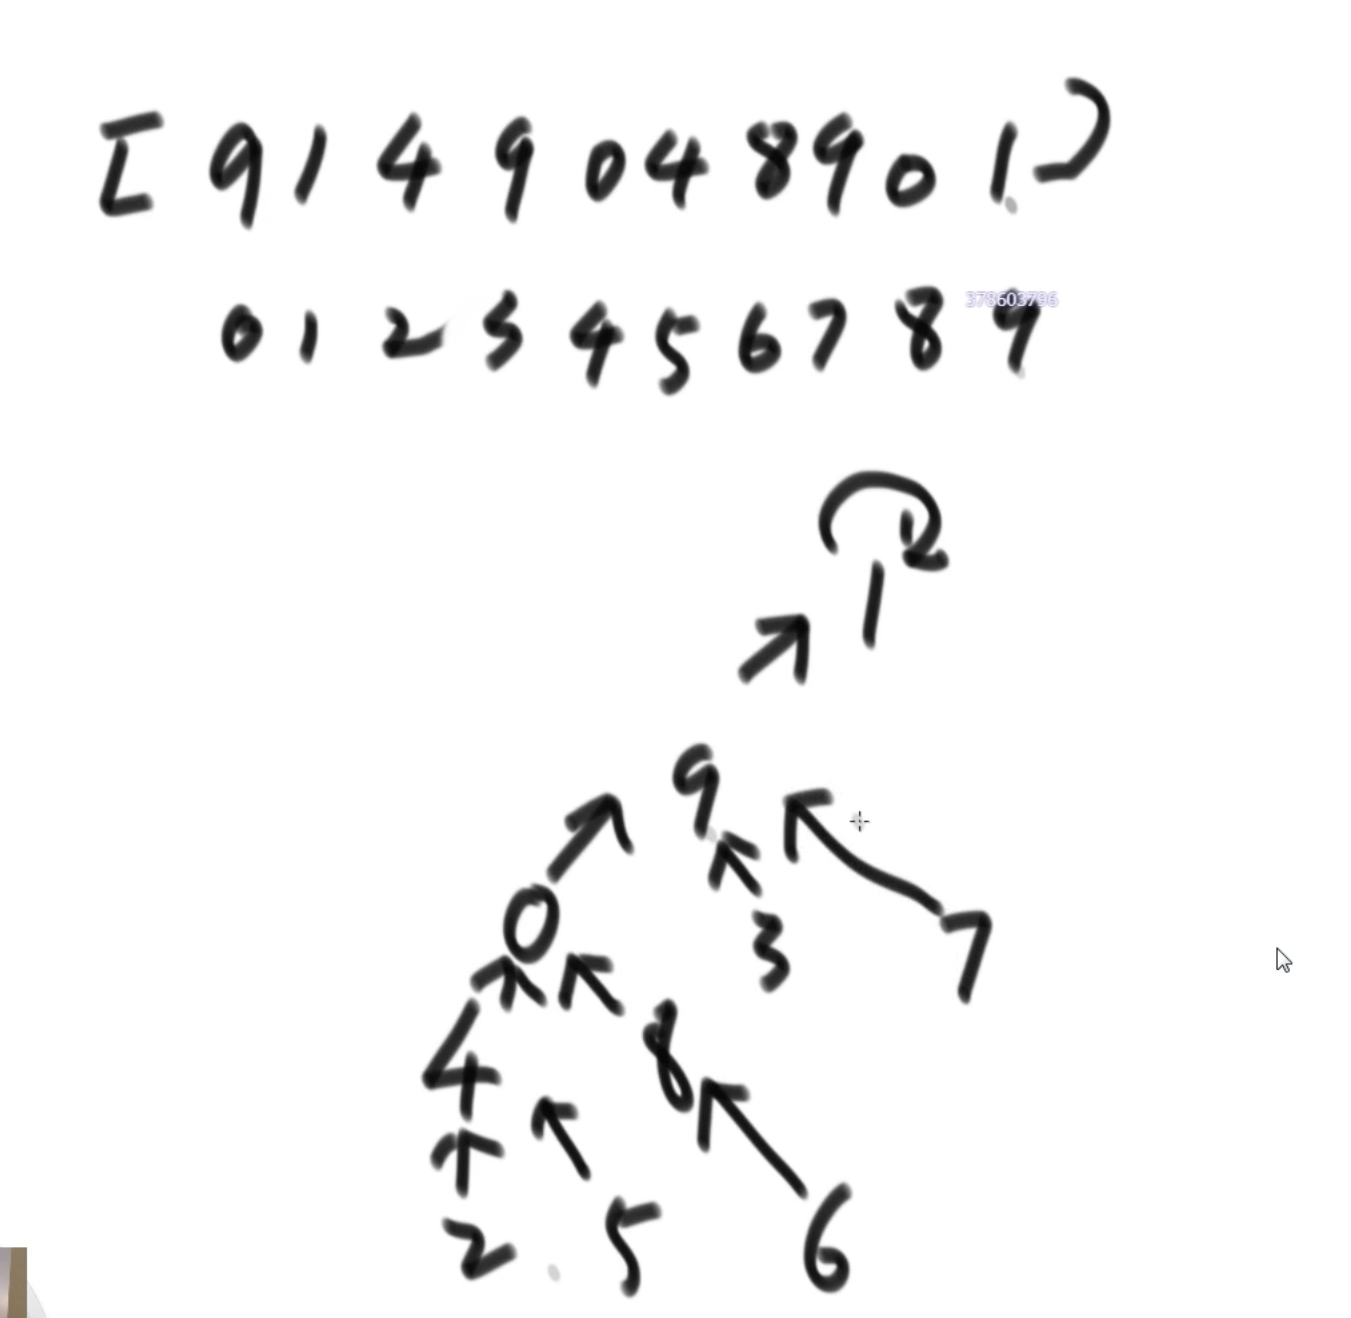 [ 9 1 4 9 0 4 8 9 0 1 ]
0 1 2 3 4 5 6 7 8 9
378603796
1
9
0 3 7
4 8
2 5 6